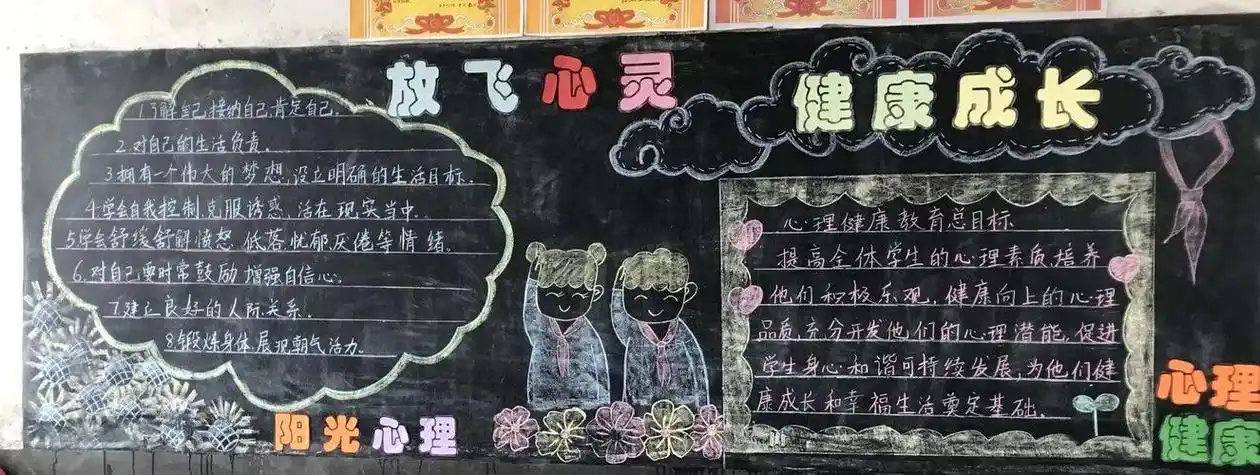 放飞心灵
健康成长
1.了解自己,接纳自己,肯定自己。
2.对自己的生活负责。
3.拥有一个伟大的梦想,设立明确的生活目标。
4.学会自我控制克服诱惑,活在现实当中。
5.学会舒缓舒解愤怒 低落忧郁厌倦等情绪。
6.对自己要时常鼓励 增强自信心。
7.建立良好的人际关系。
8.锻炼身体,展现朝气活力。
阳光心理
心理健康教育总目标
提高全体学生的心理素质,培养
他们积极乐观、健康向上的心理
品质,充分开发他们的心理潜能,促进
学生身心和谐可持续发展,为他们健
康成长和幸福生活奠定基础。
心理
健康